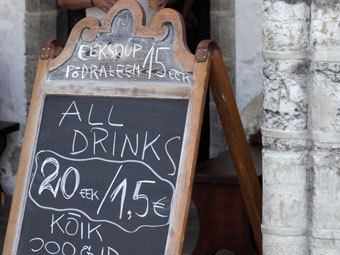 ELKSOUP
PÕDRALEEM 15 EEK
ALL
DRINKS
20 EEK / 1,5 €
KÕIK
JOOGID